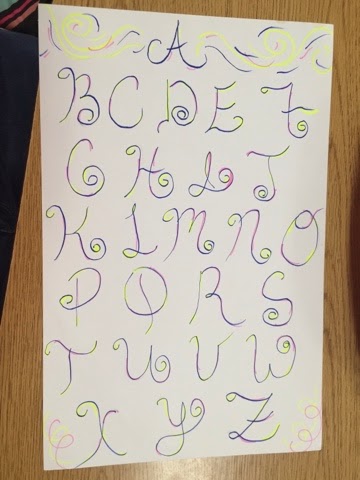 A
B C D E F
G H I J
K L M N O
P Q R S
T U V W
X Y Z